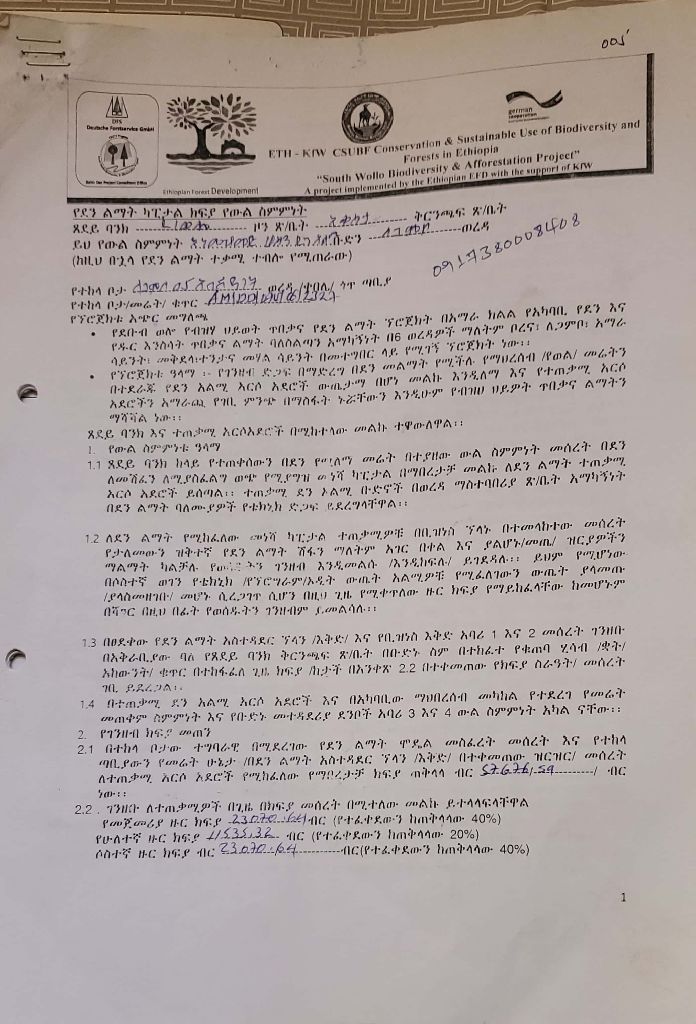 005
DFS
Deutsche Forstservice GmbH
Ethiopian Forest Development
german
cooperation
ETH - KfW CSUBF Conservation & Sustainable Use of Biodiversity and
Forests in Ethiopia
"South Wollo Biodiversity & Afforestation Project"
A project implemented by the Ethiopian EFD with the support of KfW
የደን ልማት ካፒታል ክፍያ የውል ስምምነት
ጸደይ ባንክ ዞን ጽ/ቤት ቅርንጫፍ ጽ/ቤት
ይህ የውል ስምምነት ቡድን ወረዳ
(ከዚህ በኋላ የደን ልማት ተቃሚ ተብሎ የሚጠራው)
0917380008408
የተከላ ቦታ ወረዳ /ቀበሌ/ ጎጥ ጣቢያ
የተከላ ቦታ/መሬት/ ቁጥር
የፕሮጀክቱ አጭር መግለጫ
• የደቡብ ወሎ የብዝሃ ህይወት ጥበቃና የደን ልማት ፕሮጀክት በአማራ ክልል የአካባቢ የደን እና
የዱር እንስሳት ጥበቃና ልማት ባለስልጣን አማካኝነት በ6 ወረዳዎች ማለትም ቦረና፣ ለጋምቦ፣ አማራ
ሳይንት፣ መቅደላ፣ተንታና መሃል ሳይንት በመተግበር ላይ የሚገኝ ፕሮጀክት ነው፡፡
• የፕሮጀክቱ ዓላማ ፡- የገንዘብ ድጋፍ በማድረግ በደን መልማት የሚችሉ የማህረሰብ /የወል/ መሬትን
በተደራጁ የደን አልሚ አርሶ አደሮች ውጤታማ በሆነ መልኩ እንዲለማ እና የተጠቃሚ አርሶ
አደሮችን አማራጪ የገቢ ምንጭ በማስፋት ኑሯቸውን እንዲሁም የብዝሀ ህይዎት ጥበቃና ልማትን
ማሻሻል ነው፡፡
ጸደይ ባንክ እና ተጠቃሚ አርሶአደሮች በሚከተለው መልኩ ተዋውለዋል፡፡
1. የውል ስምምነቱ ዓላማ
1.1 ጸደይ ባንክ ከላይ የተጠቀሰውን በደን የሚለማ መሬት በተያዘው ውል ስምምነት መሰረት በደን
ለመሸፈን ለሚያስፈልግ ወጭ የሚያግዝ መነሻ ካፒታል በማበረታቻ መልኩ ለደን ልማት ተጠቃሚ
አርሶ አደሮች ይሰጣል፡፡ ተጠቃሚ ደን አልሚ ቡድኖች በወረዳ ማስተባበሪያ ጽ/ቤት አማካኝነት
በደን ልማት ባለሙያዎች የቴክኒክ ድጋፍ ይደረግላቸዋል፡፡
1.2 ለደን ልማት የሚከፈለው መነሻ ካፒታል ተጠቃሚዎቹ በቢዝነስ ፕላኑ በተመላከተው መሰረት
የታለመውን ዝቅተኛ የደን ልማት ሽፋን ማለትም አገር በቀል እና ያልሆኑ/መጤ/ ዝርያዎችን
ማልማት ካልቻሉ ገንዘብ እንዲመልሱ /እንዲከፍሉ/ ይገደዳሉ፡፡ ይህም የሚሆነው
በሶስተኛ ወገን የቴክኒክ /የፕሮግራም/ኦዲት ውጤት አልሚዎቹ የሚፈለገውን ውጤት ያላመጡ
/ያላስመዘገቡ/ መሆኑ ሲረጋገጥ ሲሆን በዚህ ጊዜ የሚቀጥለው ዙር ክፍያ የማይከፈላቸው ከመሆኑም
በሻገር በዚህ በፊት የወሰዱትን ገንዘብም ይመልሳሉ፡፡
1.3 በፀደቀው የደን ልማት አስተዳደር ፕላን /እቅድ/ እና የቢዝነስ እቅድ አባሪ 1 እና 2 መሰረት ገንዘቡ
በአቅራቢያው ባለ የጸደይ ባንክ ቅርንጫፍ ጽ/ቤት በቡድኑ ስም በተከፈተ የቁጠባ ሂሳብ /ቋት/
አካውንት/ ቁጥር በተከፋፈለ ጊዜ ክፍያ /ከታች በአንቀጽ 2.2 በተቀመጠው የክፍያ ስራዓት/ መሰረት
ገቢ ይደረጋል፡፡
1.4 በተጠቃሚ ደን አልሚ አርሶ አደሮች እና በአካባቢው ማህበረሰብ መካከል የተደረገ የመሬት
መጠቀም ስምምነት እና የቡድኑ መተዳደሪያ ደንቦች አባሪ 3 እና 4 ውል ስምምነት አካል ናቸው፡፡
2. የገንዘብ ክፍያ መጠን
2.1 በተከላ ቦታው ተግባራዊ በሚደረገው የደን ልማት ሞዴል መስፈረት መሰረት እና የተከላ
ጣቢያውን የመሬት ሁኔታ /በደን ልማት አስተዳደር ፕላን /እቅድ/ በተቀመጠው ዝርዝር/ መሰረት
ለተጠቃሚ አርሶ አደሮች የሚከፈለው የማበረታቻ ክፍያ ጠቅላላ ብር 57676.59 / ብር
ነው፡፡
2.2 . ገንዘቡ ለተጠቃሚዎች በጊዜ በክፍያ መሰረት በሚተለው መልኩ ይተላላፍላቸዋል
የመጀመሪያ ዙር ክፍያ 23070.64 ብር (የተፈቀደውን ከጠቅላላው 40%)
የሁለተኛ ዙር ክፍያ 11535.32 ብር (የተፈቀደውን ከጠቅላላው 20%)
ሶስተኛ ዙር ክፍያ ብር 23070.64 ብር(የተፈቀደውን ከጠቅላላው 40%)
1